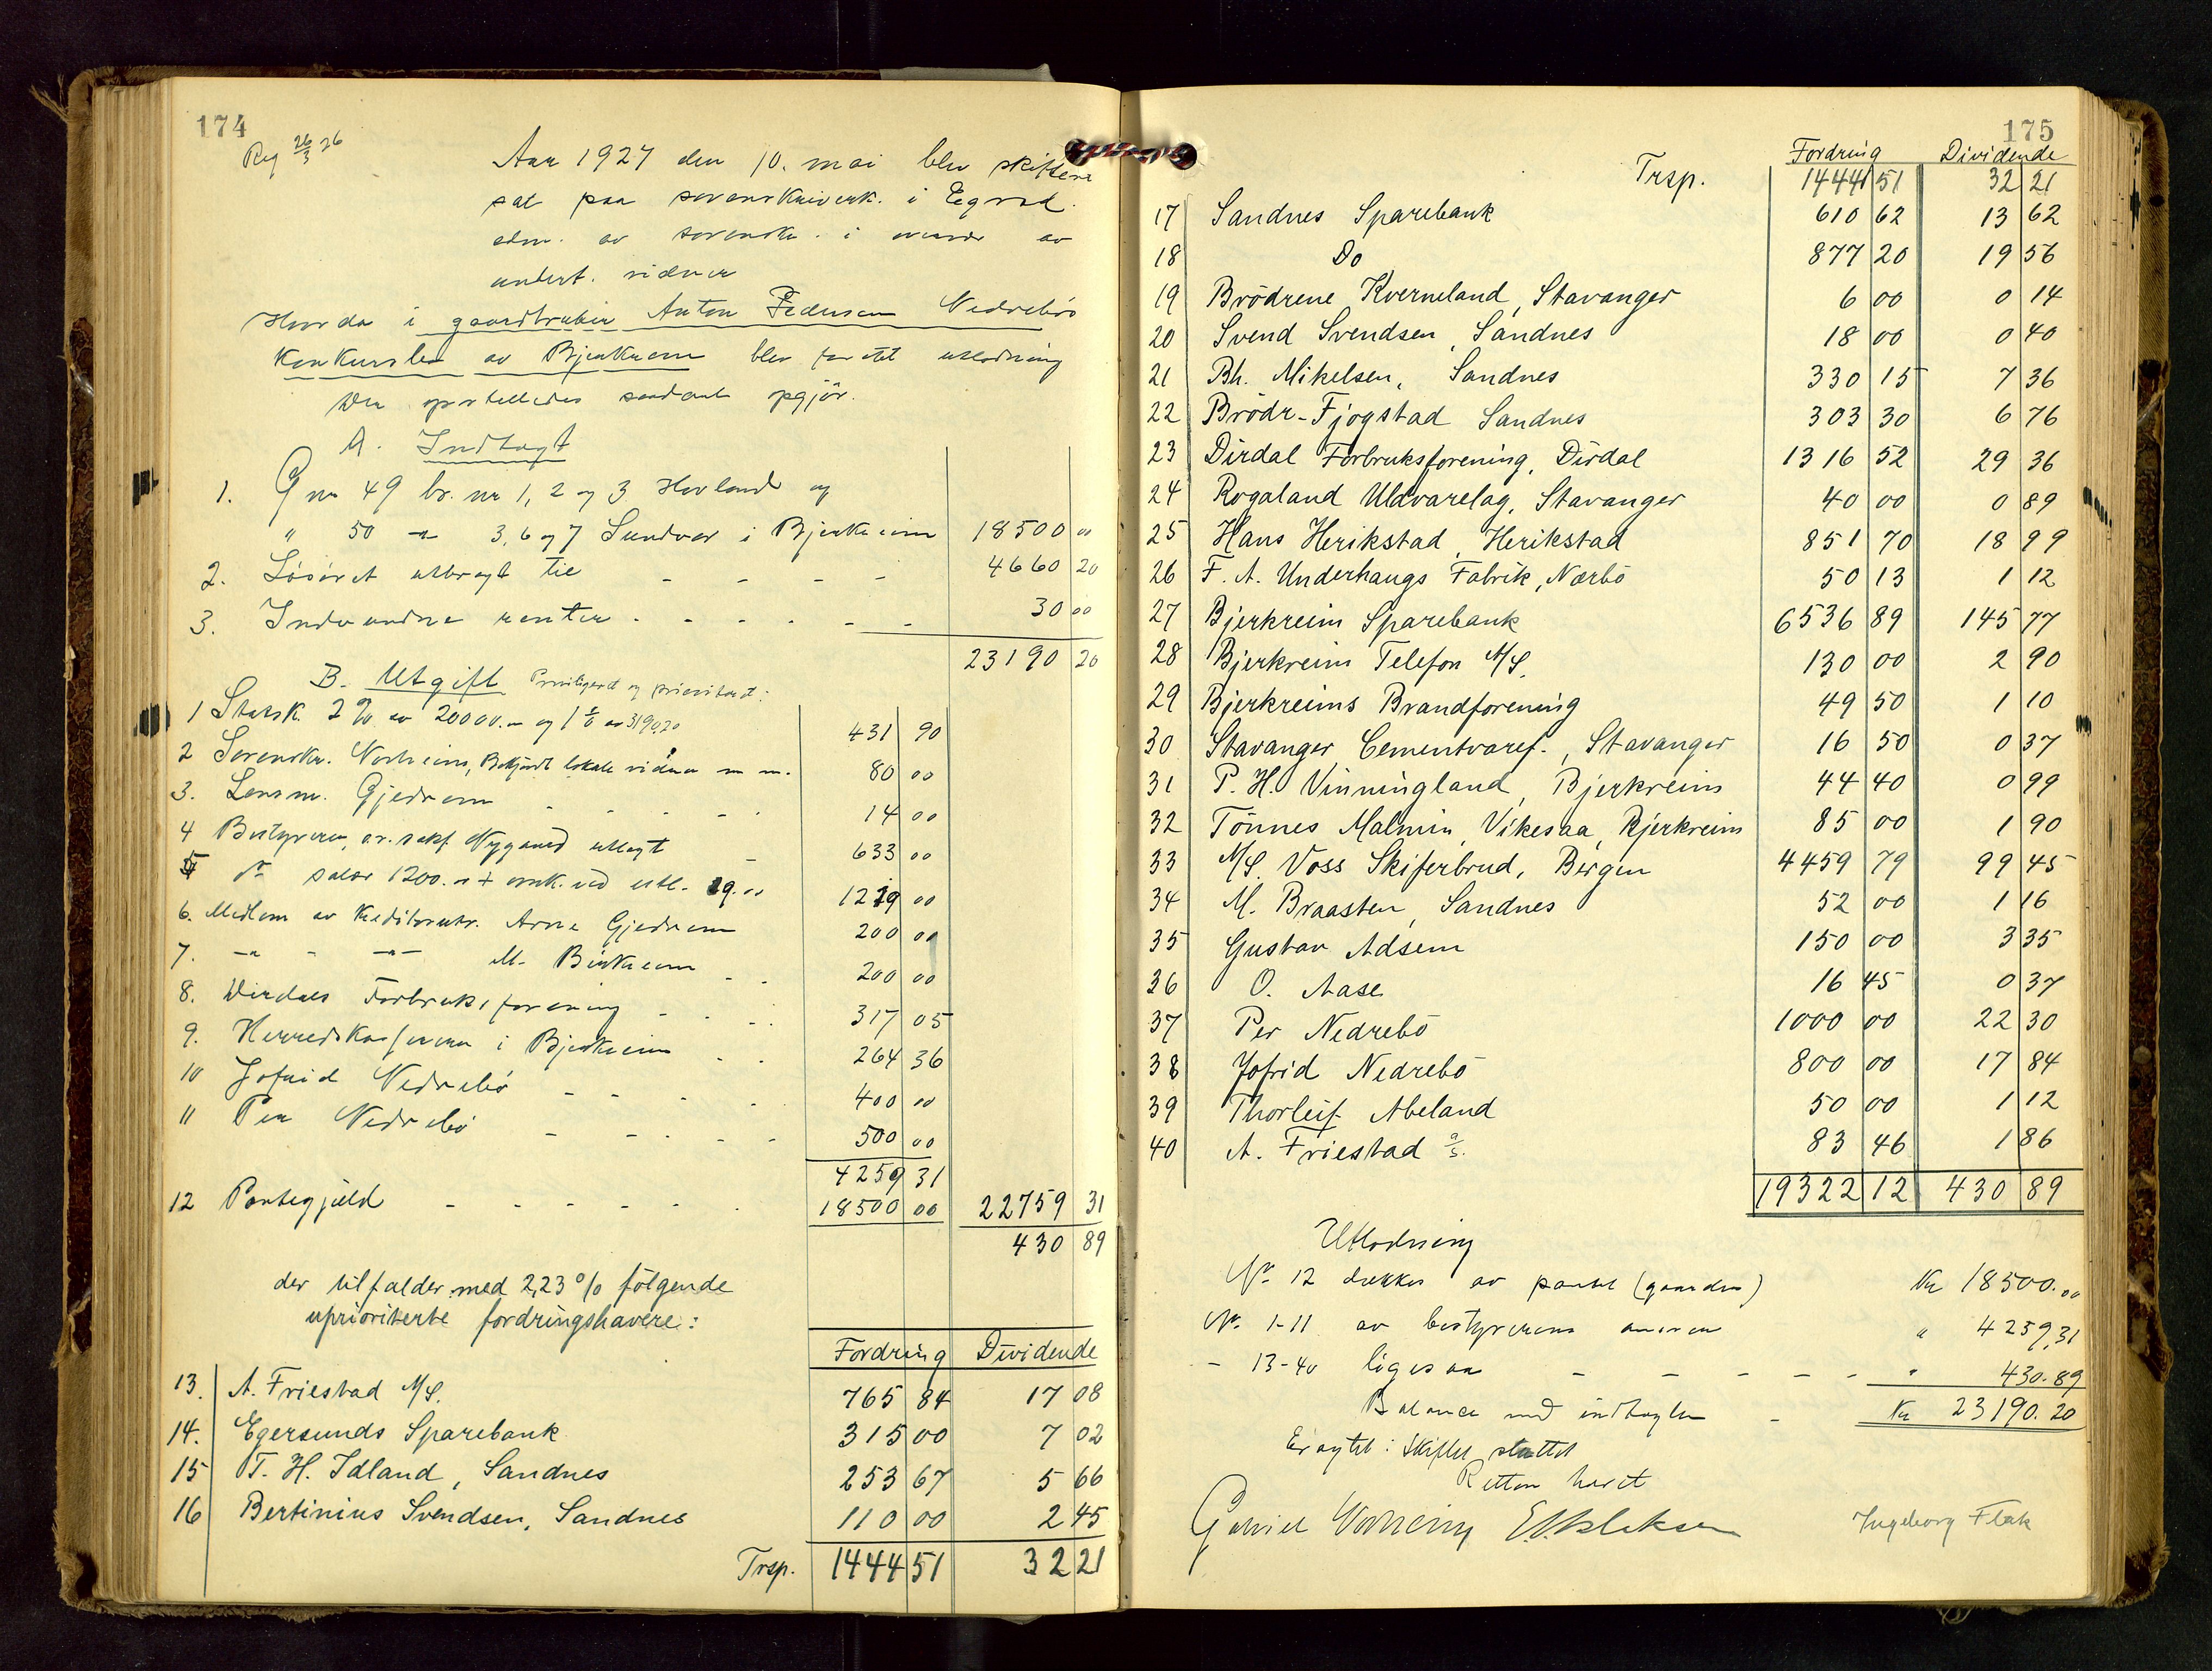 174
Reg 26/3 26
Aar 1927 den 10. mai blev skifteret
sat paa sorenskriverk. i Egersd.
adm. av sorenskr. i overvær av
undert. vidner
Hvorda i gaardbruker Anton Pedersen Nedrebös
Konkursbo av Bjerkreim blev foretat utlodning
Der opstilledes saadant opgjör.
A. Indtægt
1. G nr 49 br. nr 1, 2 og 3 Hovland og
" 50 -"- 3, 6 og 7 Sundvor i Bjerkreim 18500 00
2. Lösöret utbragt til - - - - 4660 20
3. Indvundne renter - - - - - - 30 00
23190 20
B. Utgift Priviligeret og prioritert:
1 Statsk. 2 % av 20000.- og 1 % av 3190,20 431 90
2 Sorenskr. Norheim, Bekjendt. lokale vidner m m. 80 00
3. Lensm. Gjedrem - - - - 14 00
4 Bestyreren, o.r.sakf. Nygaard utlagt - 633 00
5 do salær 1200.- + omk. ved utl. 19.00 1219 00
6. Medlem av kreditorutv. Arne Gjedrem 200 00
7. -"- - -"- M. Bjerkreim - - 200 00
8. Dirdals Forbruksforening - - - 317 05
9. Herredskassereren i Bjerkreim - - 264 36
10 Jofrid Nedrebö - - - - 400 00
11 Per Nedrebö - - - - - 500 00
4259 31
12 Pantegjæld - - - - - 18500 00 22759 31
430 89
der tilfalder med 2,23 % fölgende
uprioriterte fordringshavere:
Fordring Dividende
13. A. Friestad A/S. 765 84 17 08
14. Egersunds Sparebank 315 00 7 02
15 T. H. Idland, Sandnes 253 67 5 66
16 Bertinius Svendsen, Sandnes 110 00 2 45
Trsp. 1444 51 32 21
175
Fordring Dividende
Trsp. 1444 51 32 21
17 Sandnes Sparebank 610 62 13 62
18 Do 877 20 19 56
19 Brödrene Kverneland, Stavanger 6 00 0 14
20 Svend Svendsen, Sandnes 18 00 0 40
21 Bh. Mikelsen, Sandnes 330 15 7 36
22 Brödr. Fjogstad Sandnes 303 30 6 76
23 Dirdal Forbruksforening, Dirdal 1316 52 29 36
24 Rogaland Uldvarelag, Stavanger 40 00 0 89
25 Hans Herikstad, Herikstad 851 70 18 99
26 F. A. Underhaugs Fabrik, Nærbö 50 13 1 12
27 Bjerkreim Sparebank 6536 89 145 77
28 Bjerkreim Telefon A/S. 130 00 2 90
29 Bjerkreims Brandforening 49 50 1 10
30 Stavanger Cementvaref., Stavanger 16 50 0 37
31 P. H. Vinningland, Bjerkreim 44 40 0 99
32 Tönnes Malmin, Vikesaa, Bjerkreim 85 00 1 90
33 A/S. Voss Skiferbrud, Bergen 4459 79 99 45
34 M. Braasten, Sandnes 52 00 1 16
35 Gustav Adsem 150 00 3 35
36 O. Aase 16 45 0 37
37 Per Nedrebö 1000 00 22 30
38 Jofrid Nedrebö 800 00 17 84
39 Thorleif Abeland 50 00 1 12
40 A. Friestad a/s. 83 46 1 86
19322 12 430 89
Utlodning
No 12 dækkes av pantet (gaarden) Kr 18500.00
No. 1-11 av bestyrerens " 4259,31
- 13-40 ligesaa - - - - - " 430.89
Balance med indtægten - Kr 23190.20
Eragtet: Skiftet sluttet
Retten hævet
Gabriel Norheim E. Isleksen Ingeborg Flak